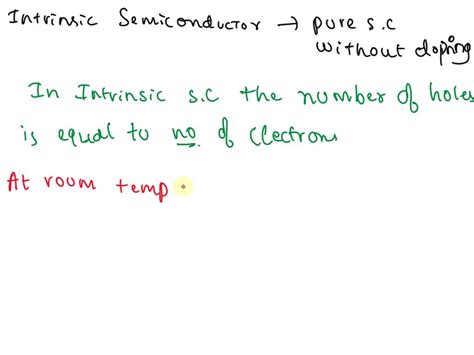 Intrinsic Semiconductor → pure s.c
without doping
In Intrinsic s.c the number of holes
is equal to no. of Electrons
At room temp